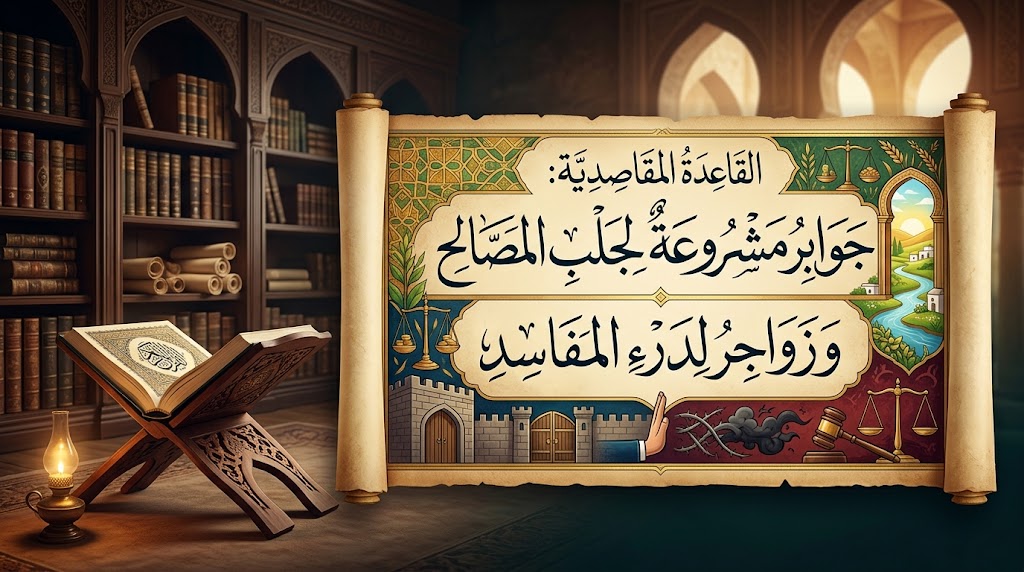 القَاعِدَةُ المَقَاصِدِيَّة:
جَوَابِرُ مَشْرُوعَةٌ لِجَلْبِ المَصَالِحِ
وَزَوَاجِرُ لِدَرْءِ المَفَاسِدِ